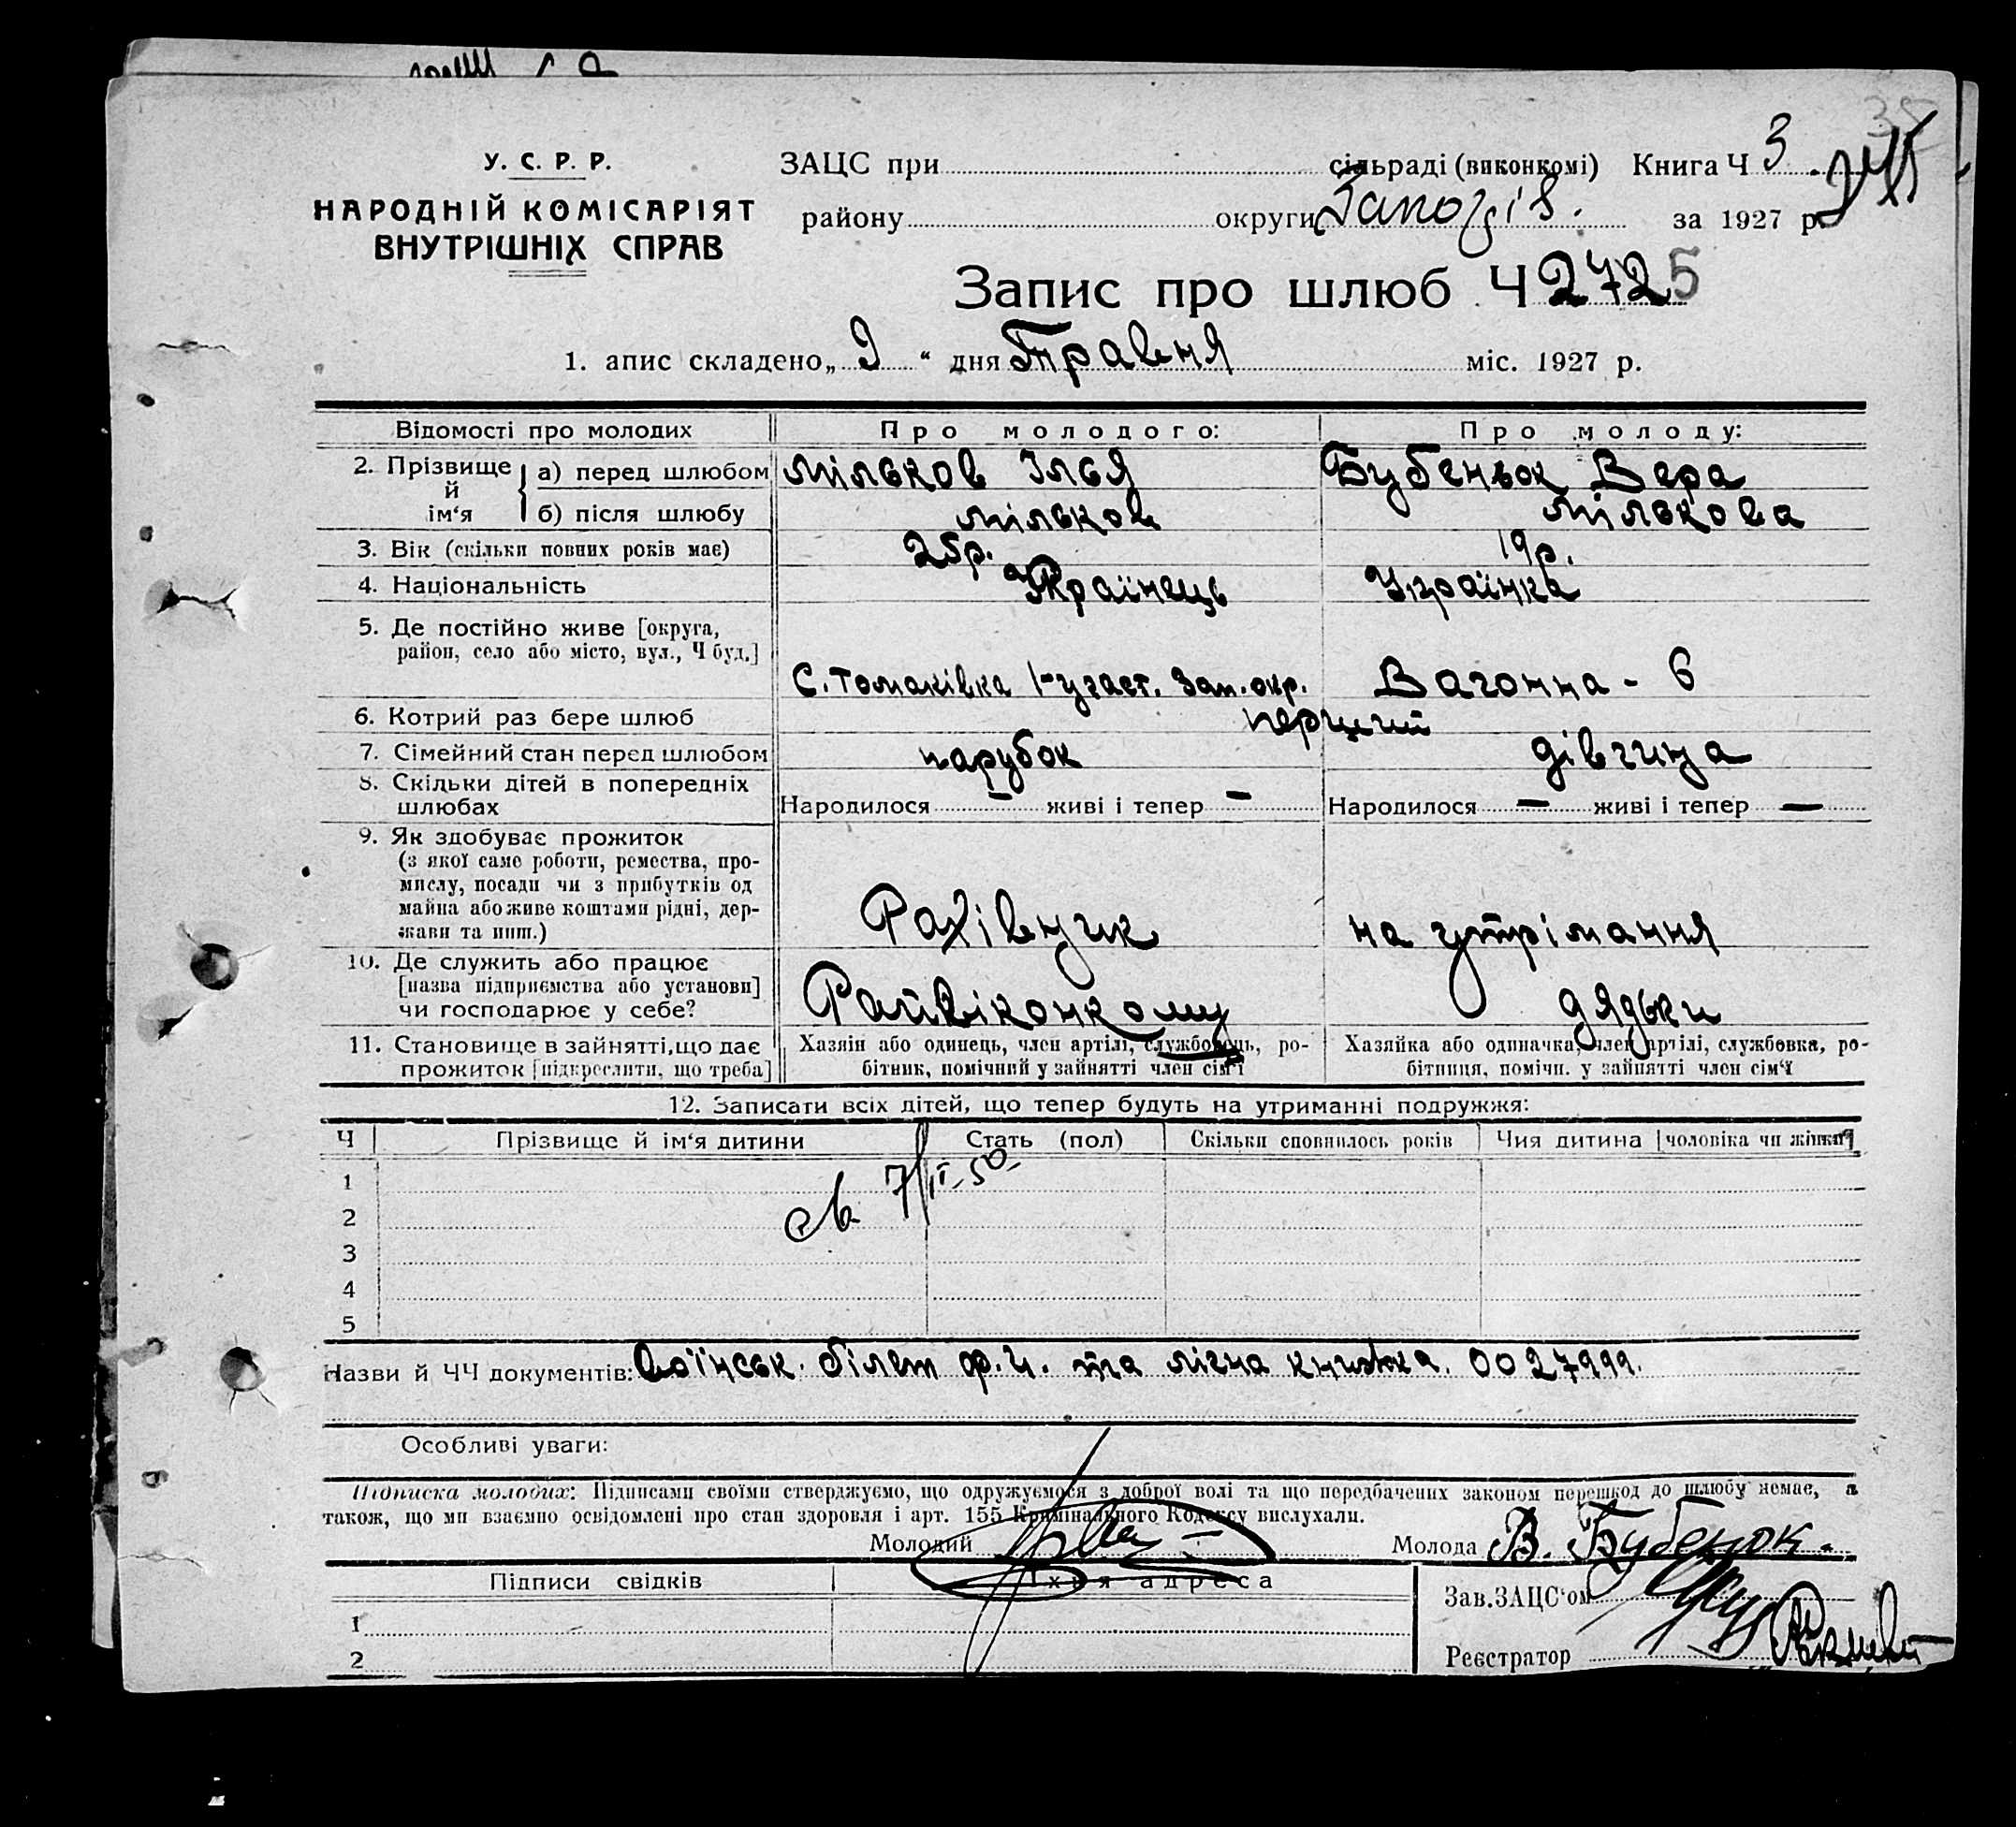 У. С. Р. Р.
НАРОДНІЙ КОМІСАРІЯТ
ВНУТРІШНІХ СПРАВ
ЗАЦС при сільраді (виконкомі) Книга Ч 3
району округи Запоріз. за 1927 р.
Запис про шлюб Ч 2725
1. апис складено „ 9 “ дня Травня міс. 1927 р.
Відомості про молодих Про молодого: Про молоду:
2. Прізвище й ім‘я
а) перед шлюбом Мільков Ілья Бубеньок Вера
б) після шлюбу Мільков Мількова
3. Вік (скільки повних років має) 25р. 19р.
4. Національність Украінець Украінка
5. Де постійно живе [округа,
район, село або місто, вул., Ч буд.]
С. Томаківка 1-участ. Зап. окр. Вагонна - 6
6. Котрий раз бере шлюб перший
7. Сімейний стан перед шлюбом парубок дівчина
8. Скільки дітей в попередніх
шлюбах Народилося — живі і тепер — Народилося — живі і тепер —
9. Як здобуває прожиток
(з якої саме роботи, ремества, про-
мислу, посади чи з прибутків од
майна або живе коштами рідні, дер-
жави та инш.)
Рахівник на утрімання
10. Де служить або працює
[назва підприємства або установи]
чи господарює у себе?
Райвіконкому дядьки
11. Становище в зайнятті, що дає
прожиток [підкреслити, що треба]
Хазяін або одинець, член артілі, службовець, ро-
бітник, помічний у зайнятті член сім‘ї
Хазяйка або одиначка, член артілі, службовка, ро-
бітниця, помічн. у зайнятті член сім‘ї
12. Записати всіх дітей, що тепер будуть на утриманні подружжя:
Ч Прізвище й ім‘я дитини Стать (пол) Скільки сповнилось років Чия дитина [чоловіка чи жінки]
1
2
3
4
5
Назви й ЧЧ документів: Воїнськ. білет ф.ч. та лічна книжка. 0027999.
Особливі уваги:
Підписка молодих: Підписами своїми стверджуємо, що одружуємося з доброї волі та що передбачених законом перешкод до шлюбу немає, а
також, що ми взаємно освідомлені про стан здоровля і арт. 155 Кримінального Кодексу вислухали.
Молодий Молода В. Бубенюк.
Підписи свідків Їхня адреса
1
2
Зав. ЗАЦС‘ом
Реєстратор